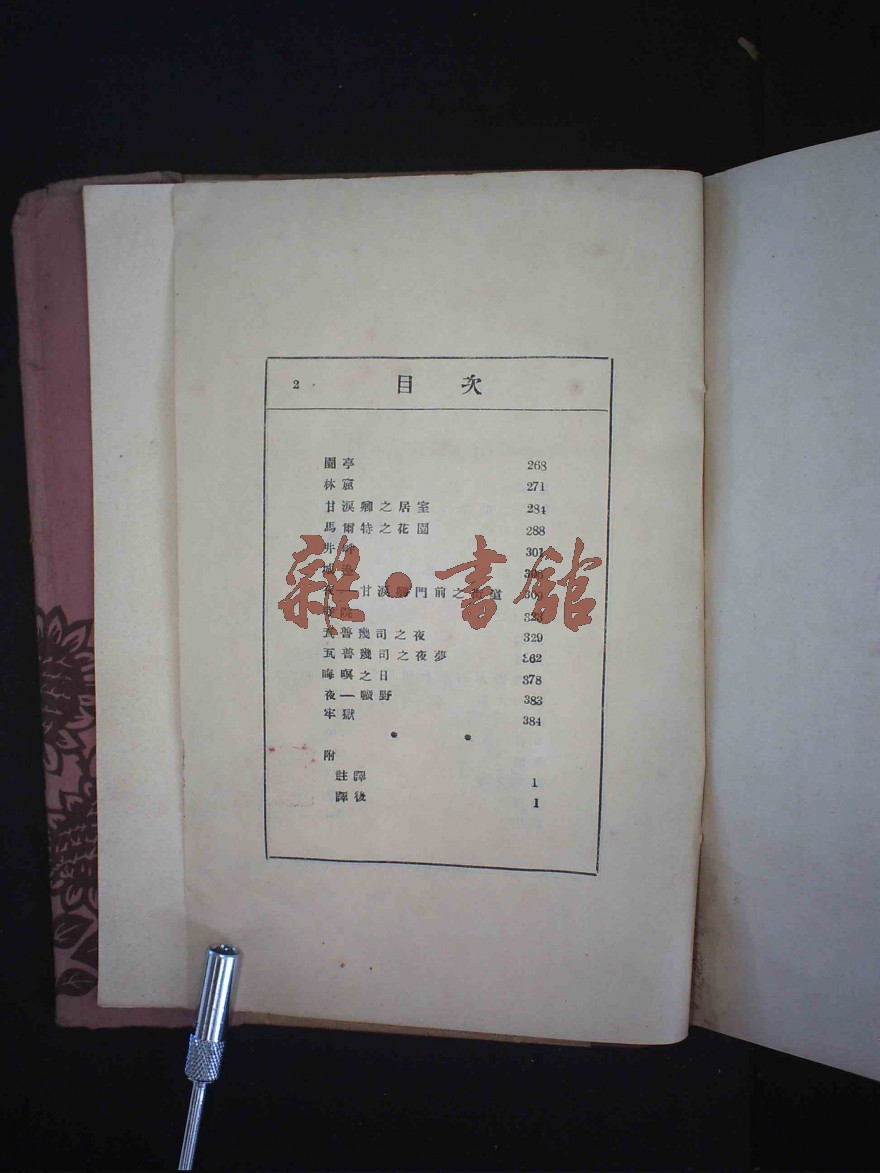 2 目次
園亭 268
林窟 271
甘淚卿之居室 284
馬爾特之花園 288
井畔 301
城
夜—甘淚卿門前之街道 309
寺院 323
瓦普幾司之夜 329
瓦普幾司之夜夢 362
晦暝之日 378
夜—曠野 383
牢獄 384
附
註譯 1
譯後 1
雜·書館